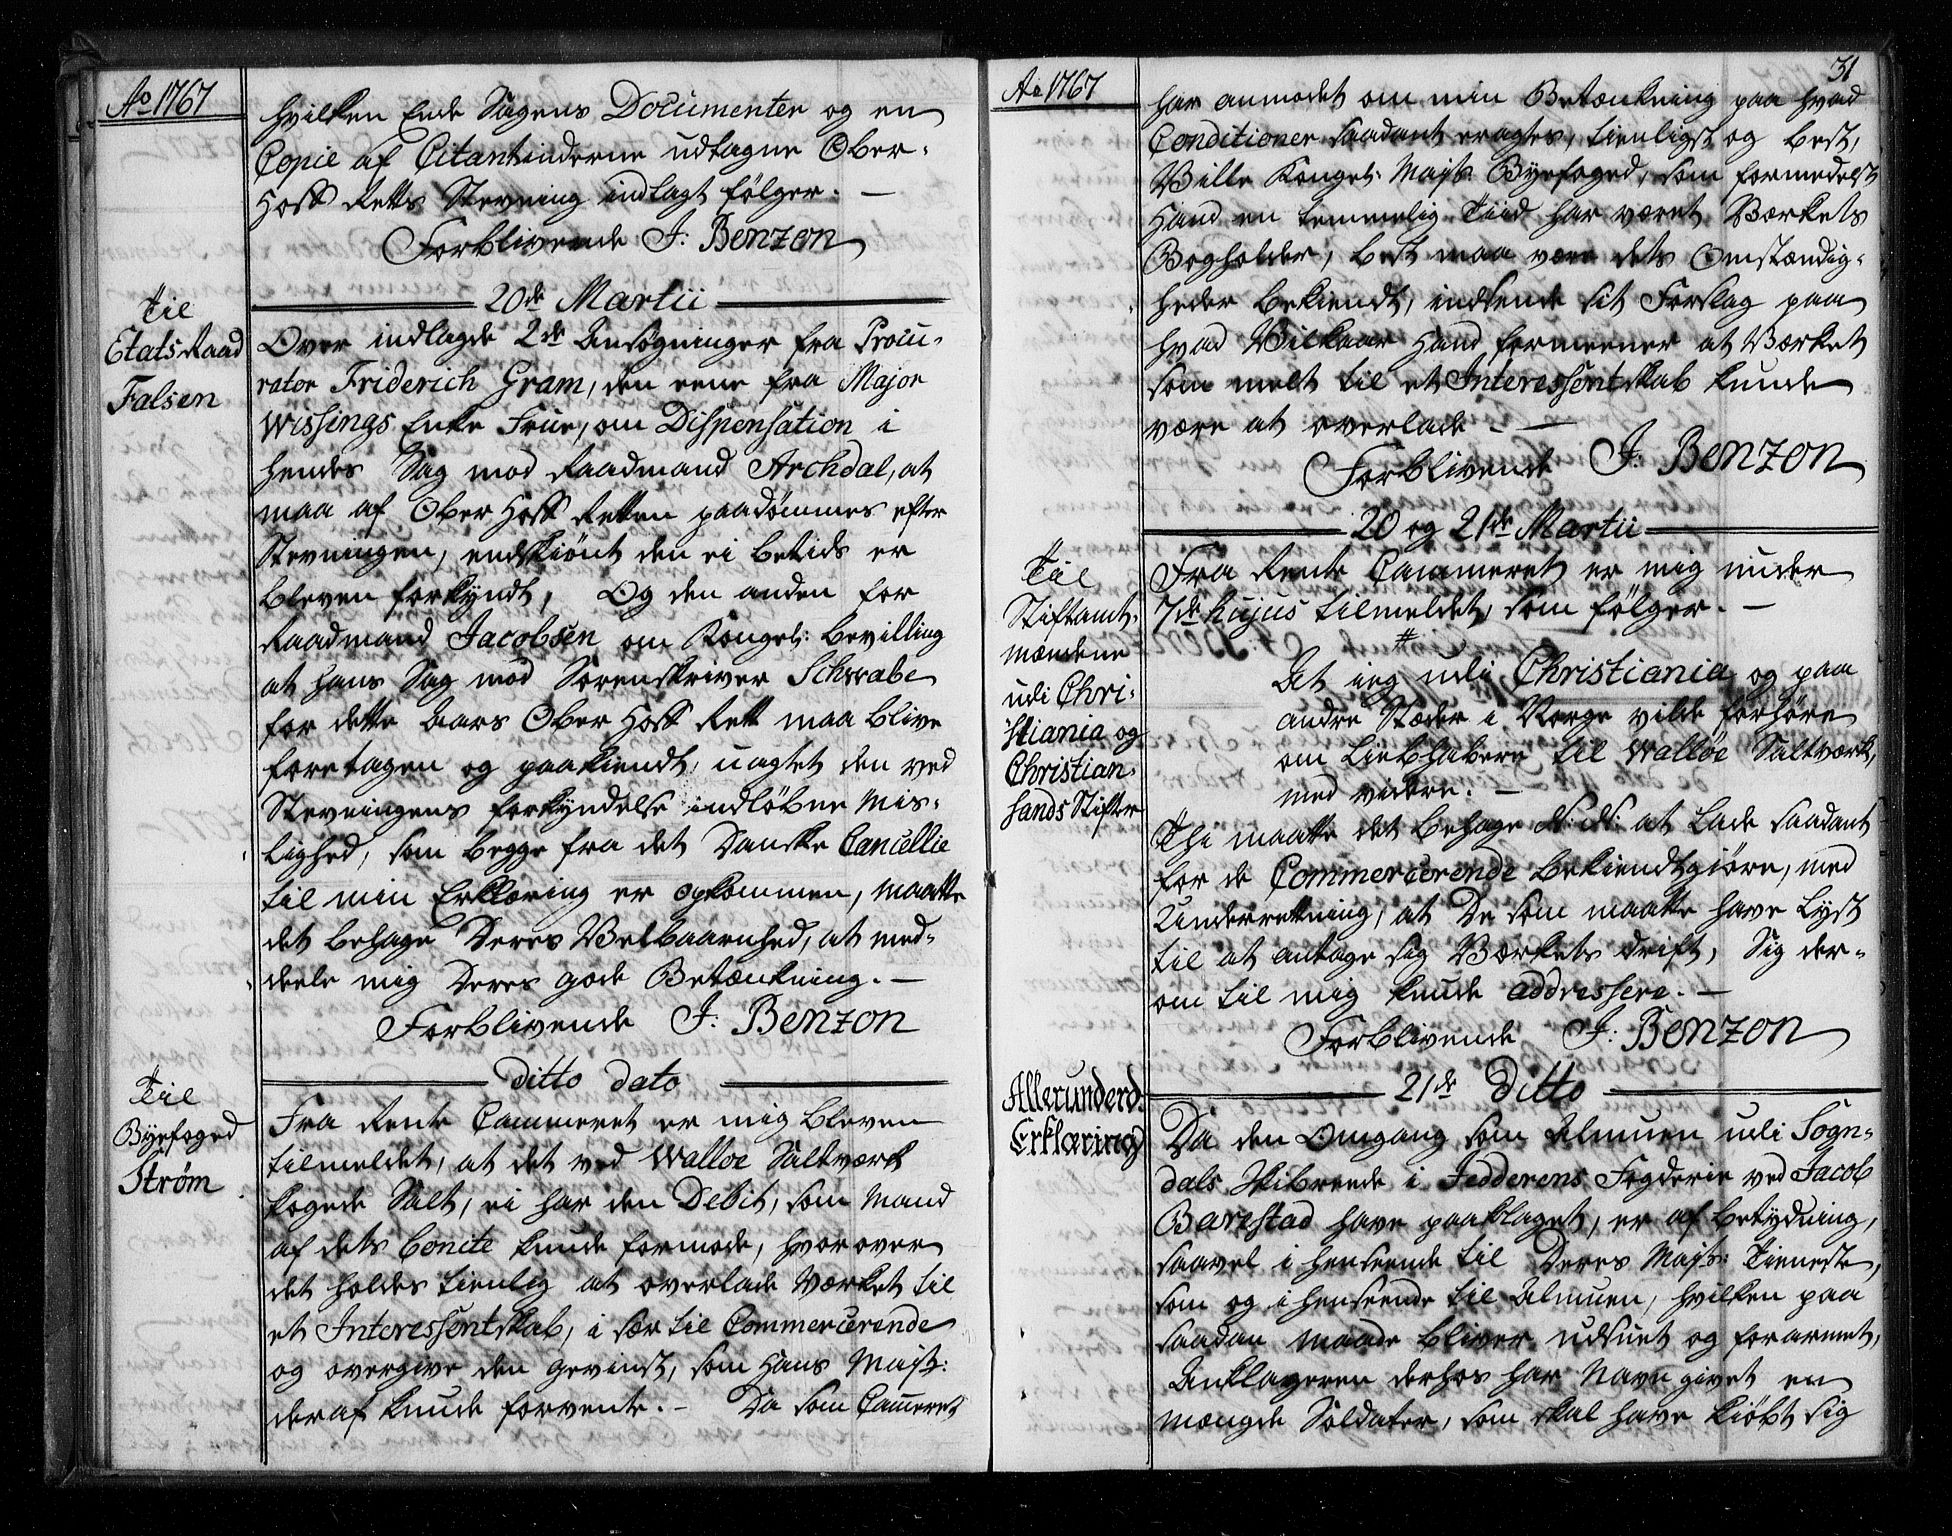 Ao 1767
hvilken Ende Sagens Documenter og en
Copie af Citantinderne udtagne Ober-
Hoff Retts Stevning indlagt følger. —
Forblivende J: Benzon
20de Martii
Til
Etats Raad
Falsen
Over indlagde 2de Ansøgninger fra Procu-
rator Friderich Gram, den eene fra Major
Wissings Enke Frue, om Dispensation i
hendes Sag mod Raadmand Archdal, at
maa af Ober Hoff Retten paadømmes efter
Stevningen, endskiønt den ei betids er
bleven forkyndt, Og den anden for
Raadmand Jacobsen om Kongel: bevilling
at hans Sag mod Sorenskriver Schwabe
for dette Aars Ober Hoff Rett maa blive
foretagen og paakiendt, uagtet den ved
Stevningens forkyndelse indløbne Mis-
lighed, som begge fra det Danske Cancellie
til min Erklæring er opkommen, maatte
det behage Deres Velbaarenhed, at med-
deele mig Deres gode Betænkning. —
Forblivende J: Benzon
ditto dato
Til
Byefoged
Strøm
Fra Rente Cammeret er mig bleven
tilmeldet, at det ved Walloe Saltværk
kogede Salt, ei har den Debit, som Mand
af dets bonite kunde formode, hvorover
det holdes tienlig at overlade Værket til
et Interessentskab, i sær til Commercerende
og overgive den gevinst, som Hans Majst:
deraf kunde forvente. — Da som Cameret
Ao 1767
31
har anmodet om min Betænkning paa hvad
Conditioner saadant eragtes, tienligst og best,
Ville Kongel: Majts Byefoged, som formedelst
Hand en temmelig Tiid har været Værkets
Bogholder, best maa være dets Omstændig-
heder bekiendt, indsende sit Forslag paa
hvad Vilkaar Hand formeener at Værket
som melt til et Interessentskab kunde
være at overlade. —
Forblivende J: Benzon
20 og 21de Martii
Til
Stiftamt-
mændene
udi Chri-
stiania og
Christian-
sands Stifter
Fra Rente Cammeret er mig under
7de hujus tilmeldet, som følger. —
#
At ieg udi Christiania og paa
andre Stæder i Norge vilde forhøre
om Liebhabere til Walløe Saltværk,
med videre. —
Thi maatte det behage d: H: at lade saadant
for de Commercerende bekiendtgiøre, med
Underretning, at De som maatte have Lyst
til at antage sig Værkets drift, Sig der-
om til mig kunde addressere. —
Forblivende J: Benzon
21de Ditto
Allerunderd.
Erklæring
Da den Omgang som Almuen udi Sogn-
dals Skibrede i Jedderens Fogderie ved Jacob
Barestad have paaklaget, er af betydning,
saavel i henseende til Deres Majts: Tieneste,
som og i henseende til Almuen, hvilken paa
saadan maade bliver udsuet og forarmet,
Anklageren derhos har Navn givet en
mængde Soldater, som skal have kiøbt sig